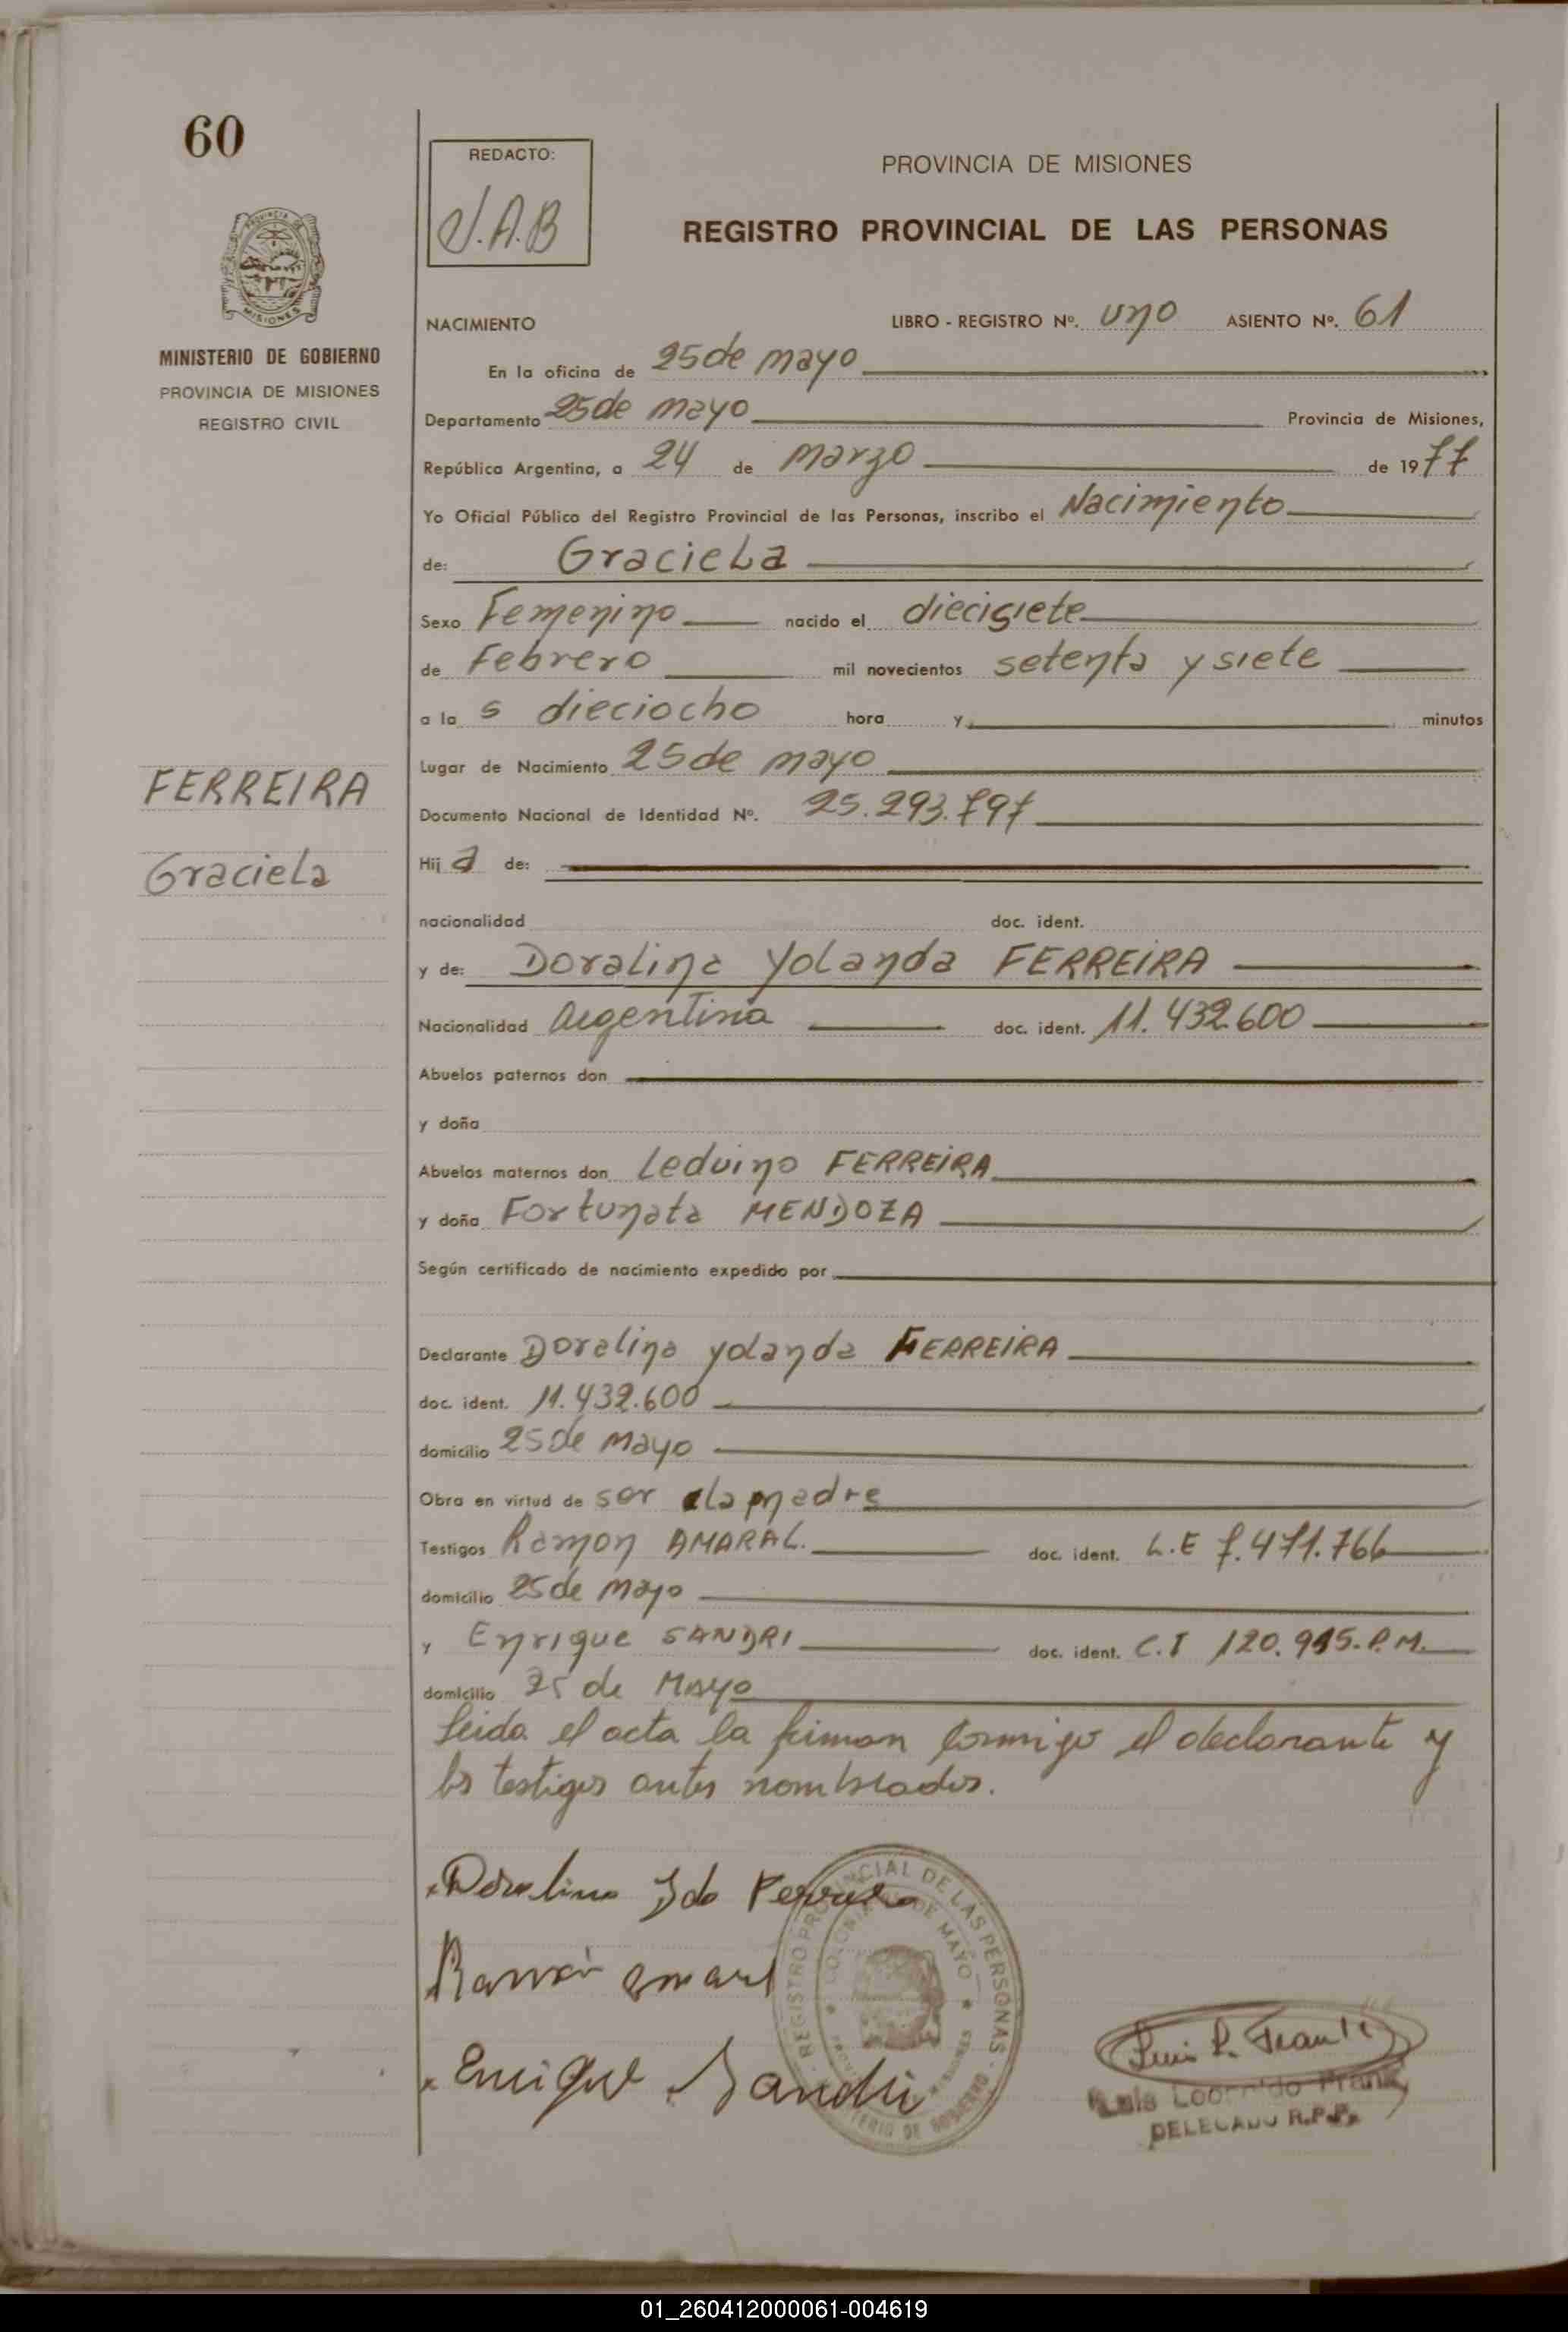 60
REDACTO:
J.A.B
PROVINCIA DE MISIONES
REGISTRO PROVINCIAL DE LAS PERSONAS
MINISTERIO DE GOBIERNO
PROVINCIA DE MISIONES
REGISTRO CIVIL
FERREIRA
Graciela
NACIMIENTO LIBRO - REGISTRO Nº. uno ASIENTO Nº. 61
En la oficina de 25 de mayo
Departamento 25 de mayo Provincia de Misiones,
República Argentina, a 24 de marzo de 1977
Yo Oficial Público del Registro Provincial de las Personas, inscribo el Nacimiento
de: Graciela
Sexo Femenino nacido el diecisiete
de Febrero mil novecientos setenta y siete
a la s dieciocho hora y minutos
Lugar de Nacimiento 25 de mayo
Documento Nacional de Identidad Nº. 25.293.797
Hij a de:
nacionalidad doc. ident.
y de: Doralina Yolanda FERREIRA
Nacionalidad Argentina doc. ident. 11.432.600
Abuelos paternos don
y doña
Abuelos maternos don Leduino FERREIRA
y doña Fortunata MENDOZA
Según certificado de nacimiento expedido por
Declarante Doralina yolanda FERREIRA
doc. ident. 11.432.600
domicilio 25 de mayo
Obra en virtud de ser la madre
Testigos Ramon AMARAL. doc. ident. L.E 7.471.766
domicilio 25 de mayo
y Enrique SANDRI doc. ident. C.I 120.915.P.M.
domicilio 25 de Mayo
Leida el acta la firman conmigo el declarante y
los testigos antes nombrados.
Doralina Ferreira
Ramón amaral
Enrique Sandri
REGISTRO PROVINCIAL DE LAS PERSONAS
COLONIA 25 DE MAYO
MINISTERIO DE GOBIERNO
Luis L. Frank
Luis Leopoldo Frank
DELEGADO R.P.P.
01_260412000061-004619